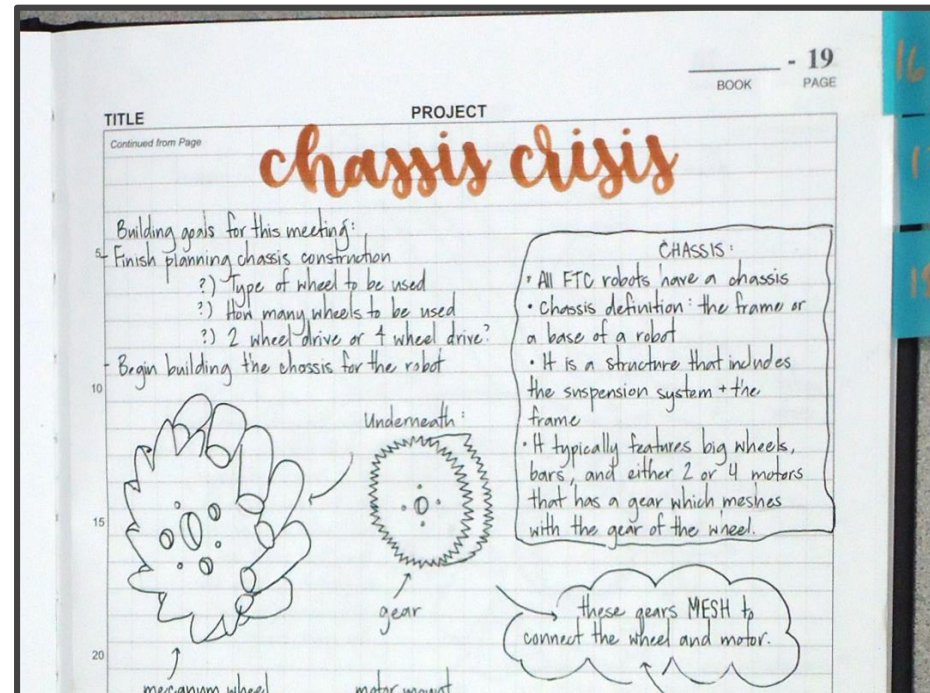 - 19
BOOK PAGE
TITLE PROJECT
Continued from Page
chassis crisis
Building goals for this meeting:
5
- Finish planning chassis construction
?) Type of wheel to be used
?) How many wheels to be used
?) 2 wheel drive or 4 wheel drive?
- Begin building the chassis for the robot
10
CHASSIS:
• All FTC robots have a chassis
• Chassis definition: the frame or
a base of a robot
• It is a structure that includes
the suspension system + the
frame
• It typically features big wheels,
bars, and either 2 or 4 motors
that has a gear which meshes
with the gear of the wheel.
Underneath:
15
gear
these gears MESH to
connect the wheel and motor.
20
mecanum wheel
motor mount
16